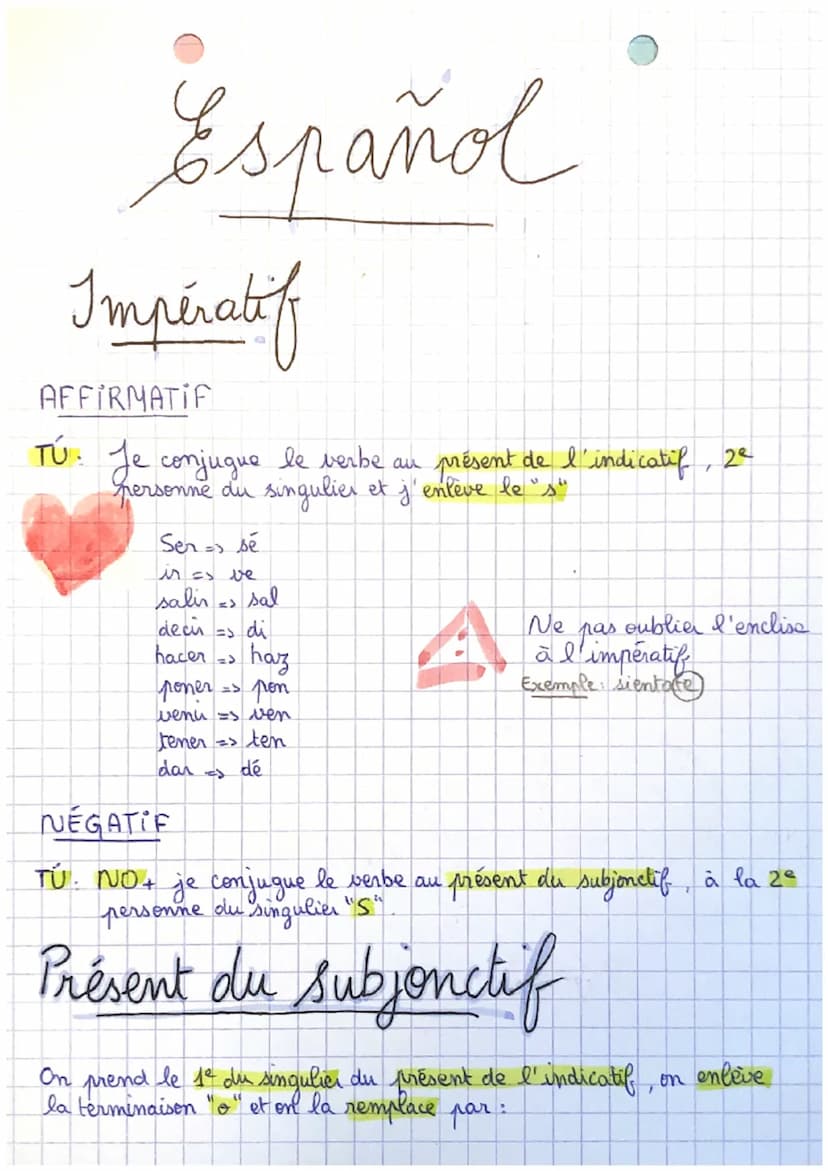 Español
Impératif
AFFIRMATIF
TÚ: Je conjugue le verbe au présent de l'indicatif, 2e
personne du singulier et j'enlève le "s"
Ser => sé
ir => ve
salir => sal
decir => di
hacer => haz
poner => pon
venir => ven
tener => ten
dar => dé
Ne pas oublier l'enclise
à l'impératif
Exemple: sientate
NÉGATIF
TÚ: NO+ je conjugue le verbe au présent du subjonctif, à la 2e
personne du singulier "S".
Présent du subjonctif
On prend le 1e du singulier du présent de l'indicatif, on enlève
la terminaison "o" et on la remplace par :